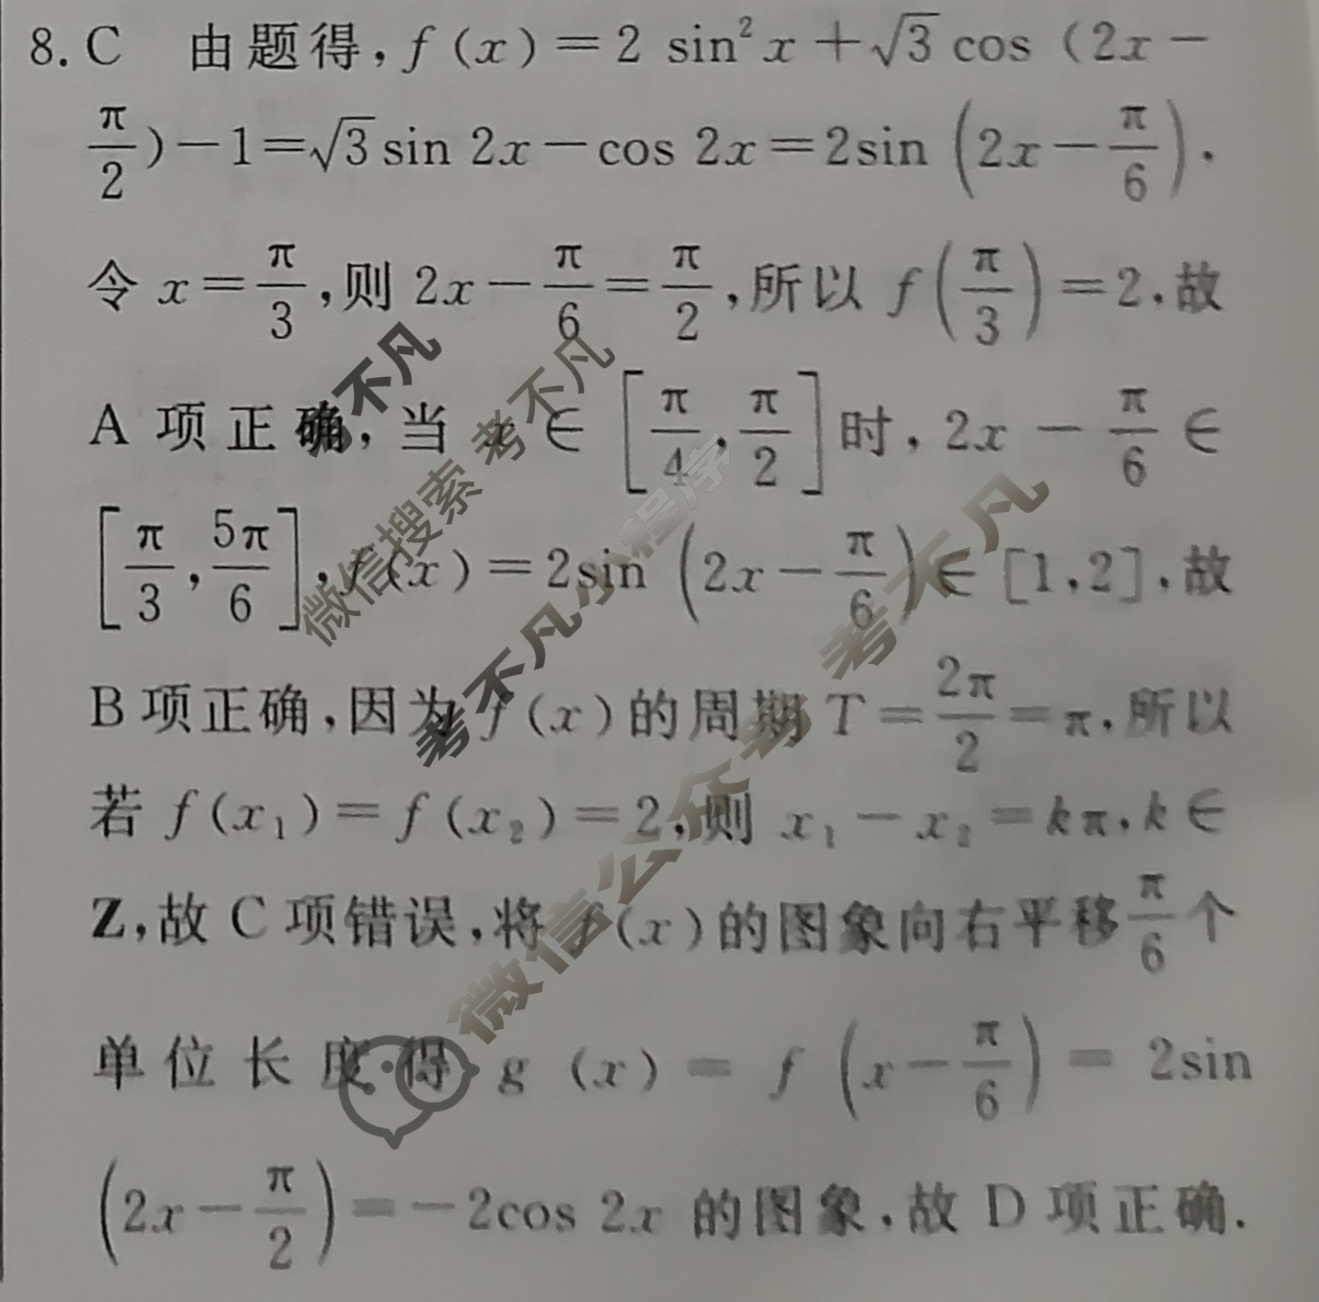 8. C 由题得，f(x)=2 sin²x+√3 cos (2x-
π/2)-1=√3 sin 2x-cos 2x=2sin (2x-π/6).
令 x=π/3，则 2x-π/6=π/2，所以 f(π/3)=2，故
A 项正确，当 x∈[π/4,π/2]时，2x-π/6∈
[π/3,5π/6]，f(x)=2sin (2x-π/6)∈[1,2]，故
B 项正确，因为 f(x)的周期 T=2π/2=π，所以
若 f(x₁)=f(x₂)=2，则 x₁-x₂=kπ，k∈
Z，故 C 项错误，将 f(x)的图象向右平移π/6个
单位长度得 g(x)=f(x-π/6)=2sin
(2x-π/2)=-2cos 2x 的图象，故 D 项正确.
考不凡
微信搜索 考不凡
考不凡小程序
微信公众号 考不凡